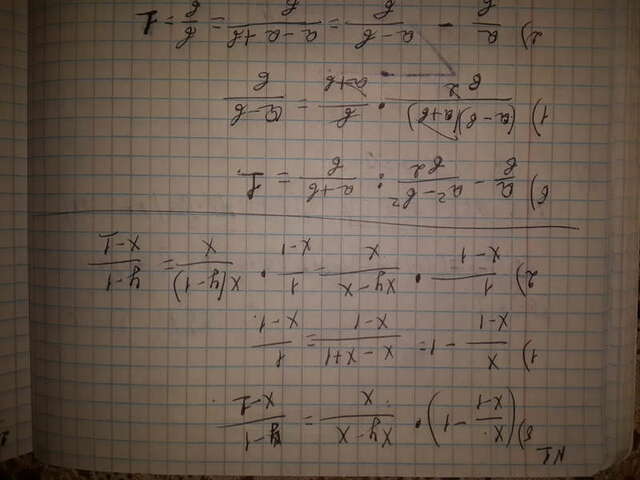 N1
б) (x/(x-1) - 1) · (xy-x)/x = (y-1)/(x-1)
1) x/(x-1) - 1 = (x-x+1)/(x-1) = 1/(x-1)
2) 1/(x-1) · (xy-x)/x = 1/(x-1) · x(y-1)/x = (y-1)/(x-1)
в) a/b - (a²-b²)/b² : (a+b)/b = 1.
1) (a-b)(a+b)/b² · b/(a+b) = (a-b)/b
2) a/b - (a-b)/b = (a-a+b)/b = b/b = 1